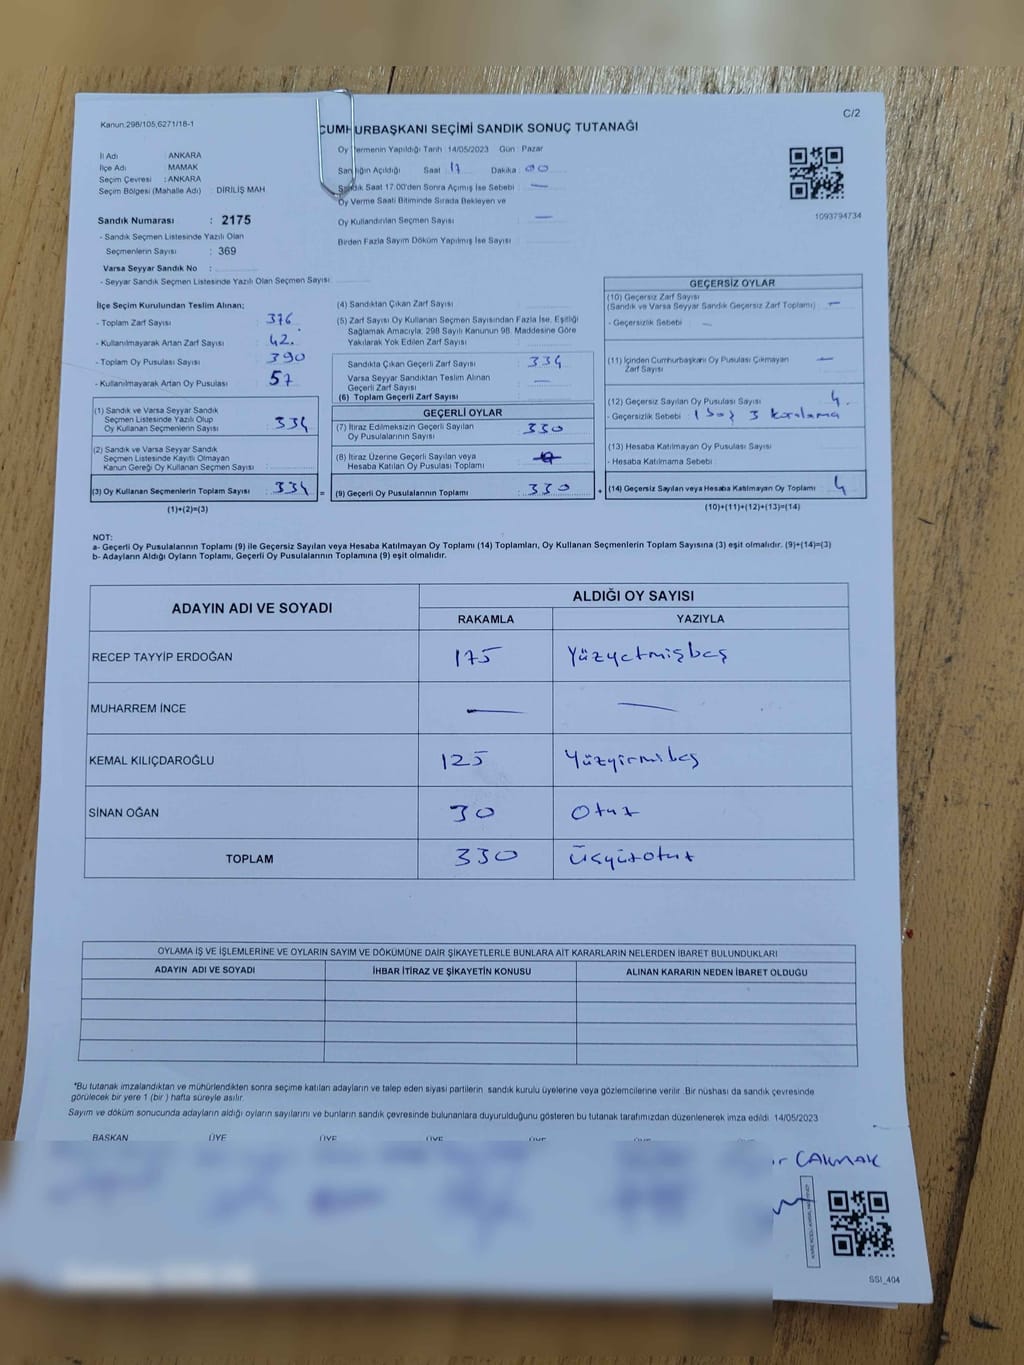 Kanun:298/105,6271/18-1
C/2
CUMHURBAŞKANI SEÇİMİ SANDIK SONUÇ TUTANAĞI
İl Adı : ANKARA
İlçe Adı : MAMAK
Seçim Çevresi : ANKARA
Seçim Bölgesi (Mahalle Adı) DİRİLİŞ MAH
Oy Vermenin Yapıldığı Tarih 14/05/2023 Gün : Pazar
Sandığın Açıldığı Saat 17 Dakika : 00
Sandık Saat 17.00'den Sonra Açımış İse Sebebi : —
Oy Verme Saati Bitiminde Sırada Bekleyen ve
Oy Kullandırılan Seçmen Sayısı : —
Birden Fazla Sayım Döküm Yapılmış İse Sayısı :
1093794734
Sandık Numarası : 2175
- Sandık Seçmen Listesinde Yazılı Olan
Seçmenlerin Sayısı : 369
Varsa Seyyar Sandık No :
- Seyyar Sandık Seçmen Listesinde Yazılı Olan Seçmen Sayısı :
İlçe Seçim Kurulundan Teslim Alınan;
- Toplam Zarf Sayısı : 376
- Kullanılmayarak Artan Zarf Sayısı : 42
- Toplam Oy Pusulası Sayısı : 390
- Kullanılmayarak Artan Oy Pusulası : 57
(1) Sandık ve Varsa Seyyar Sandık
Seçmen Listesinde Yazılı Olup
Oy Kullanan Seçmenlerin Sayısı : 334
(2) Sandık ve Varsa Seyyar Sandık
Seçmen Listesinde Kayıtlı Olmayan
Kanun Gereği Oy Kullanan Seçmen Sayısı :
(3) Oy Kullanan Seçmenlerin Toplam Sayısı : 334 =
(1)+(2)=(3)
(4) Sandıktan Çıkan Zarf Sayısı :
(5) Zarf Sayısı Oy Kullanan Seçmen Sayısından Fazla İse, Eşitliği
Sağlamak Amacıyla, 298 Sayılı Kanunun 98. Maddesine Göre
Yakılarak Yok Edilen Zarf Sayısı :
Sandıkta Çıkan Geçerli Zarf Sayısı : 334
Varsa Seyyar Sandıktan Teslim Alınan
Geçerli Zarf Sayısı : —
(6) Toplam Geçerli Zarf Sayısı :
GEÇERLİ OYLAR
(7) İtiraz Edilmeksizin Geçerli Sayılan
Oy Pusulalarının Sayısı : 330
(8) İtiraz Üzerine Geçerli Sayılan veya
Hesaba Katılan Oy Pusulası Toplamı :
(9) Geçerli Oy Pusulalarının Toplamı : 330 +
GEÇERSİZ OYLAR
(10) Geçersiz Zarf Sayısı
(Sandık ve Varsa Seyyar Sandık Geçersiz Zarf Toplamı) : —
- Geçersizlik Sebebi : —
(11) İçinden Cumhurbaşkanı Oy Pusulası Çıkmayan
Zarf Sayısı : —
(12) Geçersiz Sayılan Oy Pusulası Sayısı : 4
- Geçersizlik Sebebi : 1 boş 3 karalama
(13) Hesaba Katılmayan Oy Pusulası Sayısı
- Hesaba Katılmama Sebebi
(14) Geçersiz Sayılan veya Hesaba Katılmayan Oy Toplamı : 4
(10)+(11)+(12)+(13)=(14)
NOT:
a- Geçerli Oy Pusulalarının Toplamı (9) ile Geçersiz Sayılan veya Hesaba Katılmayan Oy Toplamı (14) Toplamları, Oy Kullanan Seçmenlerin Toplam Sayısına (3) eşit olmalıdır. (9)+(14)=(3)
b- Adayların Aldığı Oyların Toplamı, Geçerli Oy Pusulalarının Toplamına (9) eşit olmalıdır.
ADAYIN ADI VE SOYADI
ALDIĞI OY SAYISI
RAKAMLA YAZIYLA
RECEP TAYYİP ERDOĞAN 175 Yüzyetmişbeş
MUHARREM İNCE — —
KEMAL KILIÇDAROĞLU 125 Yüzyirmibeş
SİNAN OĞAN 30 Otuz
TOPLAM 330 Üçyüzotuz
OYLAMA İŞ VE İŞLEMLERİNE VE OYLARIN SAYIM VE DÖKÜMÜNE DAİR ŞİKAYETLERLE BUNLARA AİT KARARLARIN NELERDEN İBARET BULUNDUKLARI
ADAYIN ADI VE SOYADI İHBAR İTİRAZ VE ŞİKAYETİN KONUSU ALINAN KARARIN NEDEN İBARET OLDUĞU
*Bu tutanak imzalandıktan ve mühürlendikten sonra seçime katılan adayların ve talep eden siyasi partilerin sandık kurulu üyelerine veya gözlemcilerine verilir. Bir nüshası da sandık çevresinde
görülecek bir yere 1 (bir ) hafta süreyle asılır.
Sayım ve döküm sonucunda adayların aldığı oyların sayılarını ve bunların sandık çevresinde bulunanlara duyurulduğunu gösteren bu tutanak tarafımızdan düzenlenerek imza edildi 14/05/2023
BAŞKAN ÜYE ÜYE ÜYE ÜYE ÜYE
ÇAKMAK
SSI_404